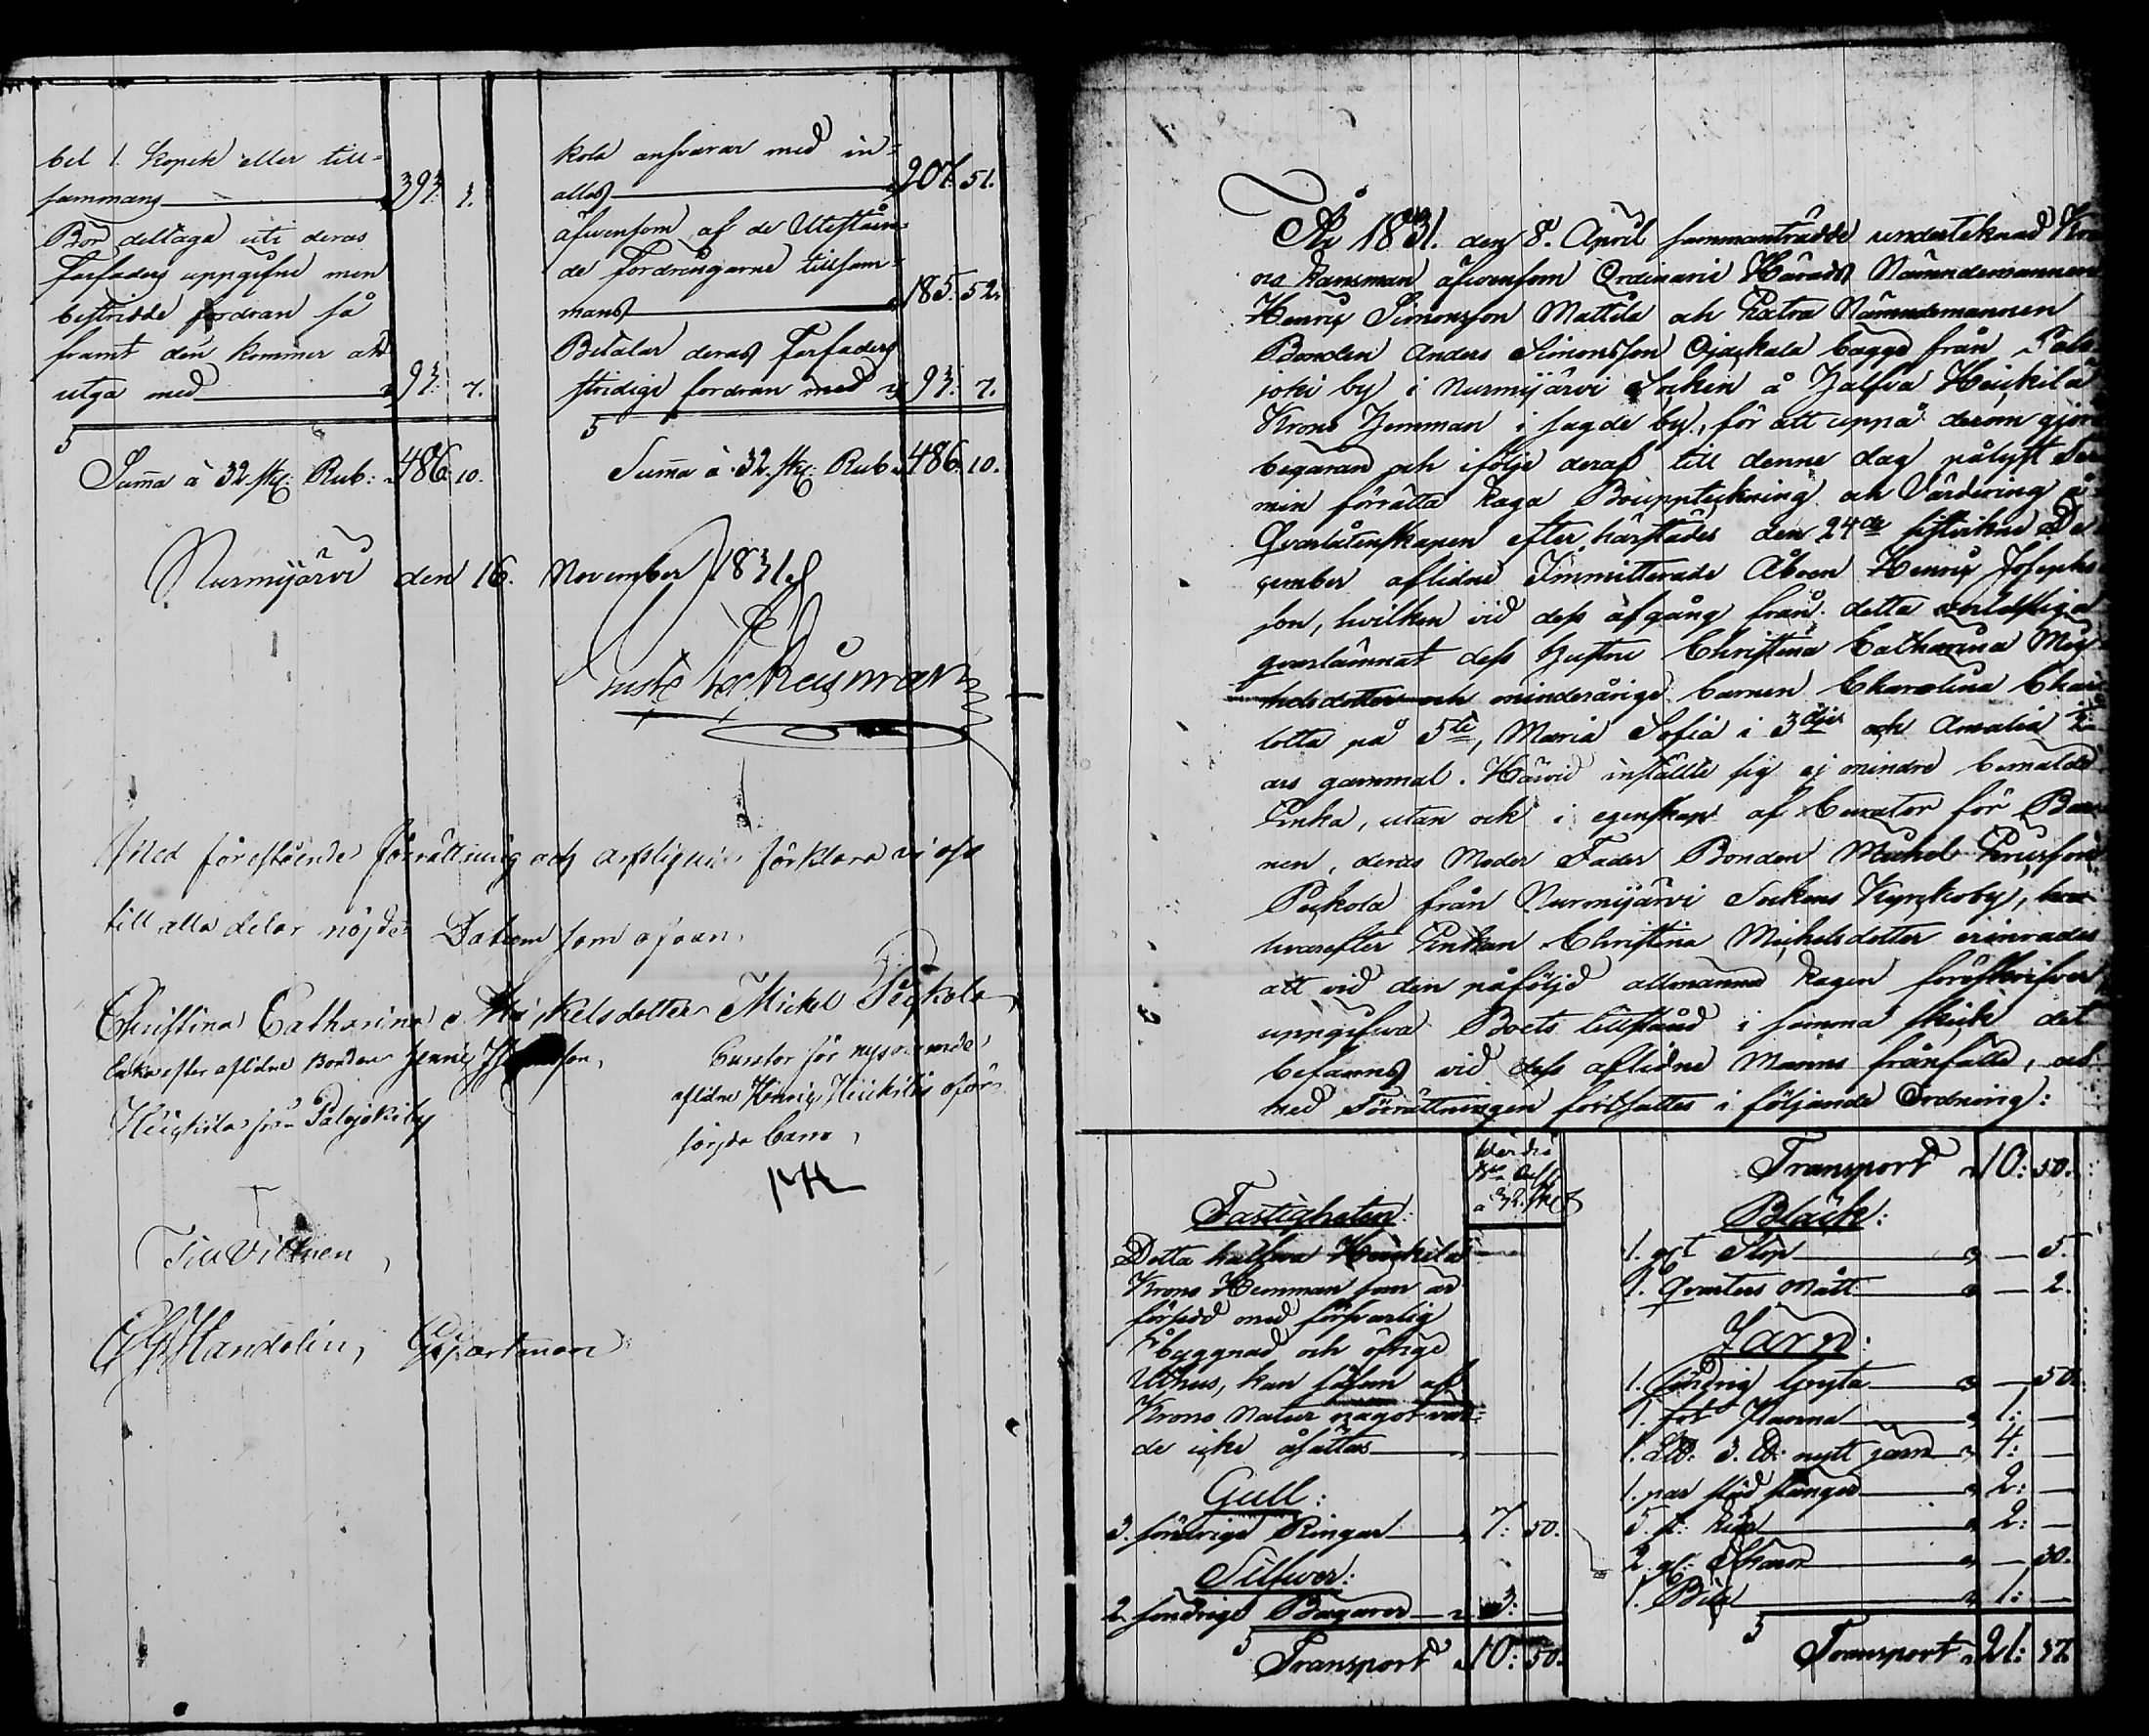 bel 1. Kopek eller till=
sammans 393. 3.
Bör deltaga uti deras
Farfaders uppgifne men
bestridde fordran så
framt den kommer att
utgå med 93. 7.
Summa à 32 sk: Rub: 486. 10.
kola ansvarar med in=
alles 207. 51.
äfvensom af de Utestånn=
de fordringarne tillsam=
mans 185. 52.
Betalar deras Farfaders
stridige fordran med 93. 7.
Summa à 32. sk: Rub 486. 10.
Nurmijärvi den 16. November 1831.
Med förestående förrättning och arfslignid förklara vi oss
till alla delar nöjde. Datum som ofvan.
Christina Catharina Michelsdotter
Enka efter aflidne Bonden Henric
Heickilä från Palojoki by
Mickel Peckola
Curator för
aflidne Henric Heickiläs oför=
sörjda barn,
Till Vittnen,
Mandelin, Hartman
År 1831. den 8. April sammanträdde undertecknad Kro
no Länsman äfvensom Ordinarie Härads Nämndemannen
Henric Simonsson Mattila och Extra Nämndemannen
Bonden Anders Simonsson Ojackala bägge från Palo
joki by i Nurmijärvi Socken å halfva Heickilä
Krono Hemman i sagde by, för att uppå derom gjord
begäran och ifölje deraf till denne dag pålyst Ter
min förrätta Laga Bouppteckning och Värdering å
Qvarlåtenskapen efter härstädes den 24de sistvikne De
cember aflidne Immitterade Åboen Henric Josephs
son, hvilken vid dess afgång från detta verldsliga
qvarlämnat dess hustru Christina Catharina Mic
helsdotter och minderårige barnen Charolina Char
lotta på 5te, Maria Sofia i 3dje och Amalia
års gammal. Härvid inställte sig ej mindre bemälde
Enka, utan ock i egenskap af Curator för Bar
nen, deras Moder Fader Bonden Michel
Peckola från Nurmijärvi Sockens Kyrkoby,
hvarefter Enkan Christina Michelsdotter erinrades
att vid den påföljd allmänna Lagen föreskrifver
uppgifva Boets tillstånd i samma skick det
befanns vid dess aflidne Manns frånfälle, och
med Förrättningen fortsattes i följande Ordning:
Fastigheten:
Detta halfva Heickilä
Krono Hemman som är
försedd med försvarlig
Åbyggnad och öfrige
Uthus, kan såsom af
Krono Natur något vär=
de icke åsättas
Gull:
3. söndrige Ringar 7: 50.
Silfver:
2 söndrige Bägarer 3: —
Transport 10: 50.
Transport 10: 50.
Bläck:
1. Stop — 5.
1. Qvarters Mått — 2.
Järn:
1. söndrig Gryta — 50.
1. Panna 1: —
1. L℔: 3. ℔: nytt järn 4: —
1. par stänger 2: —
5. st: 2: —
2 — 30.
1. Bila 1: —
Transport 21: 37.